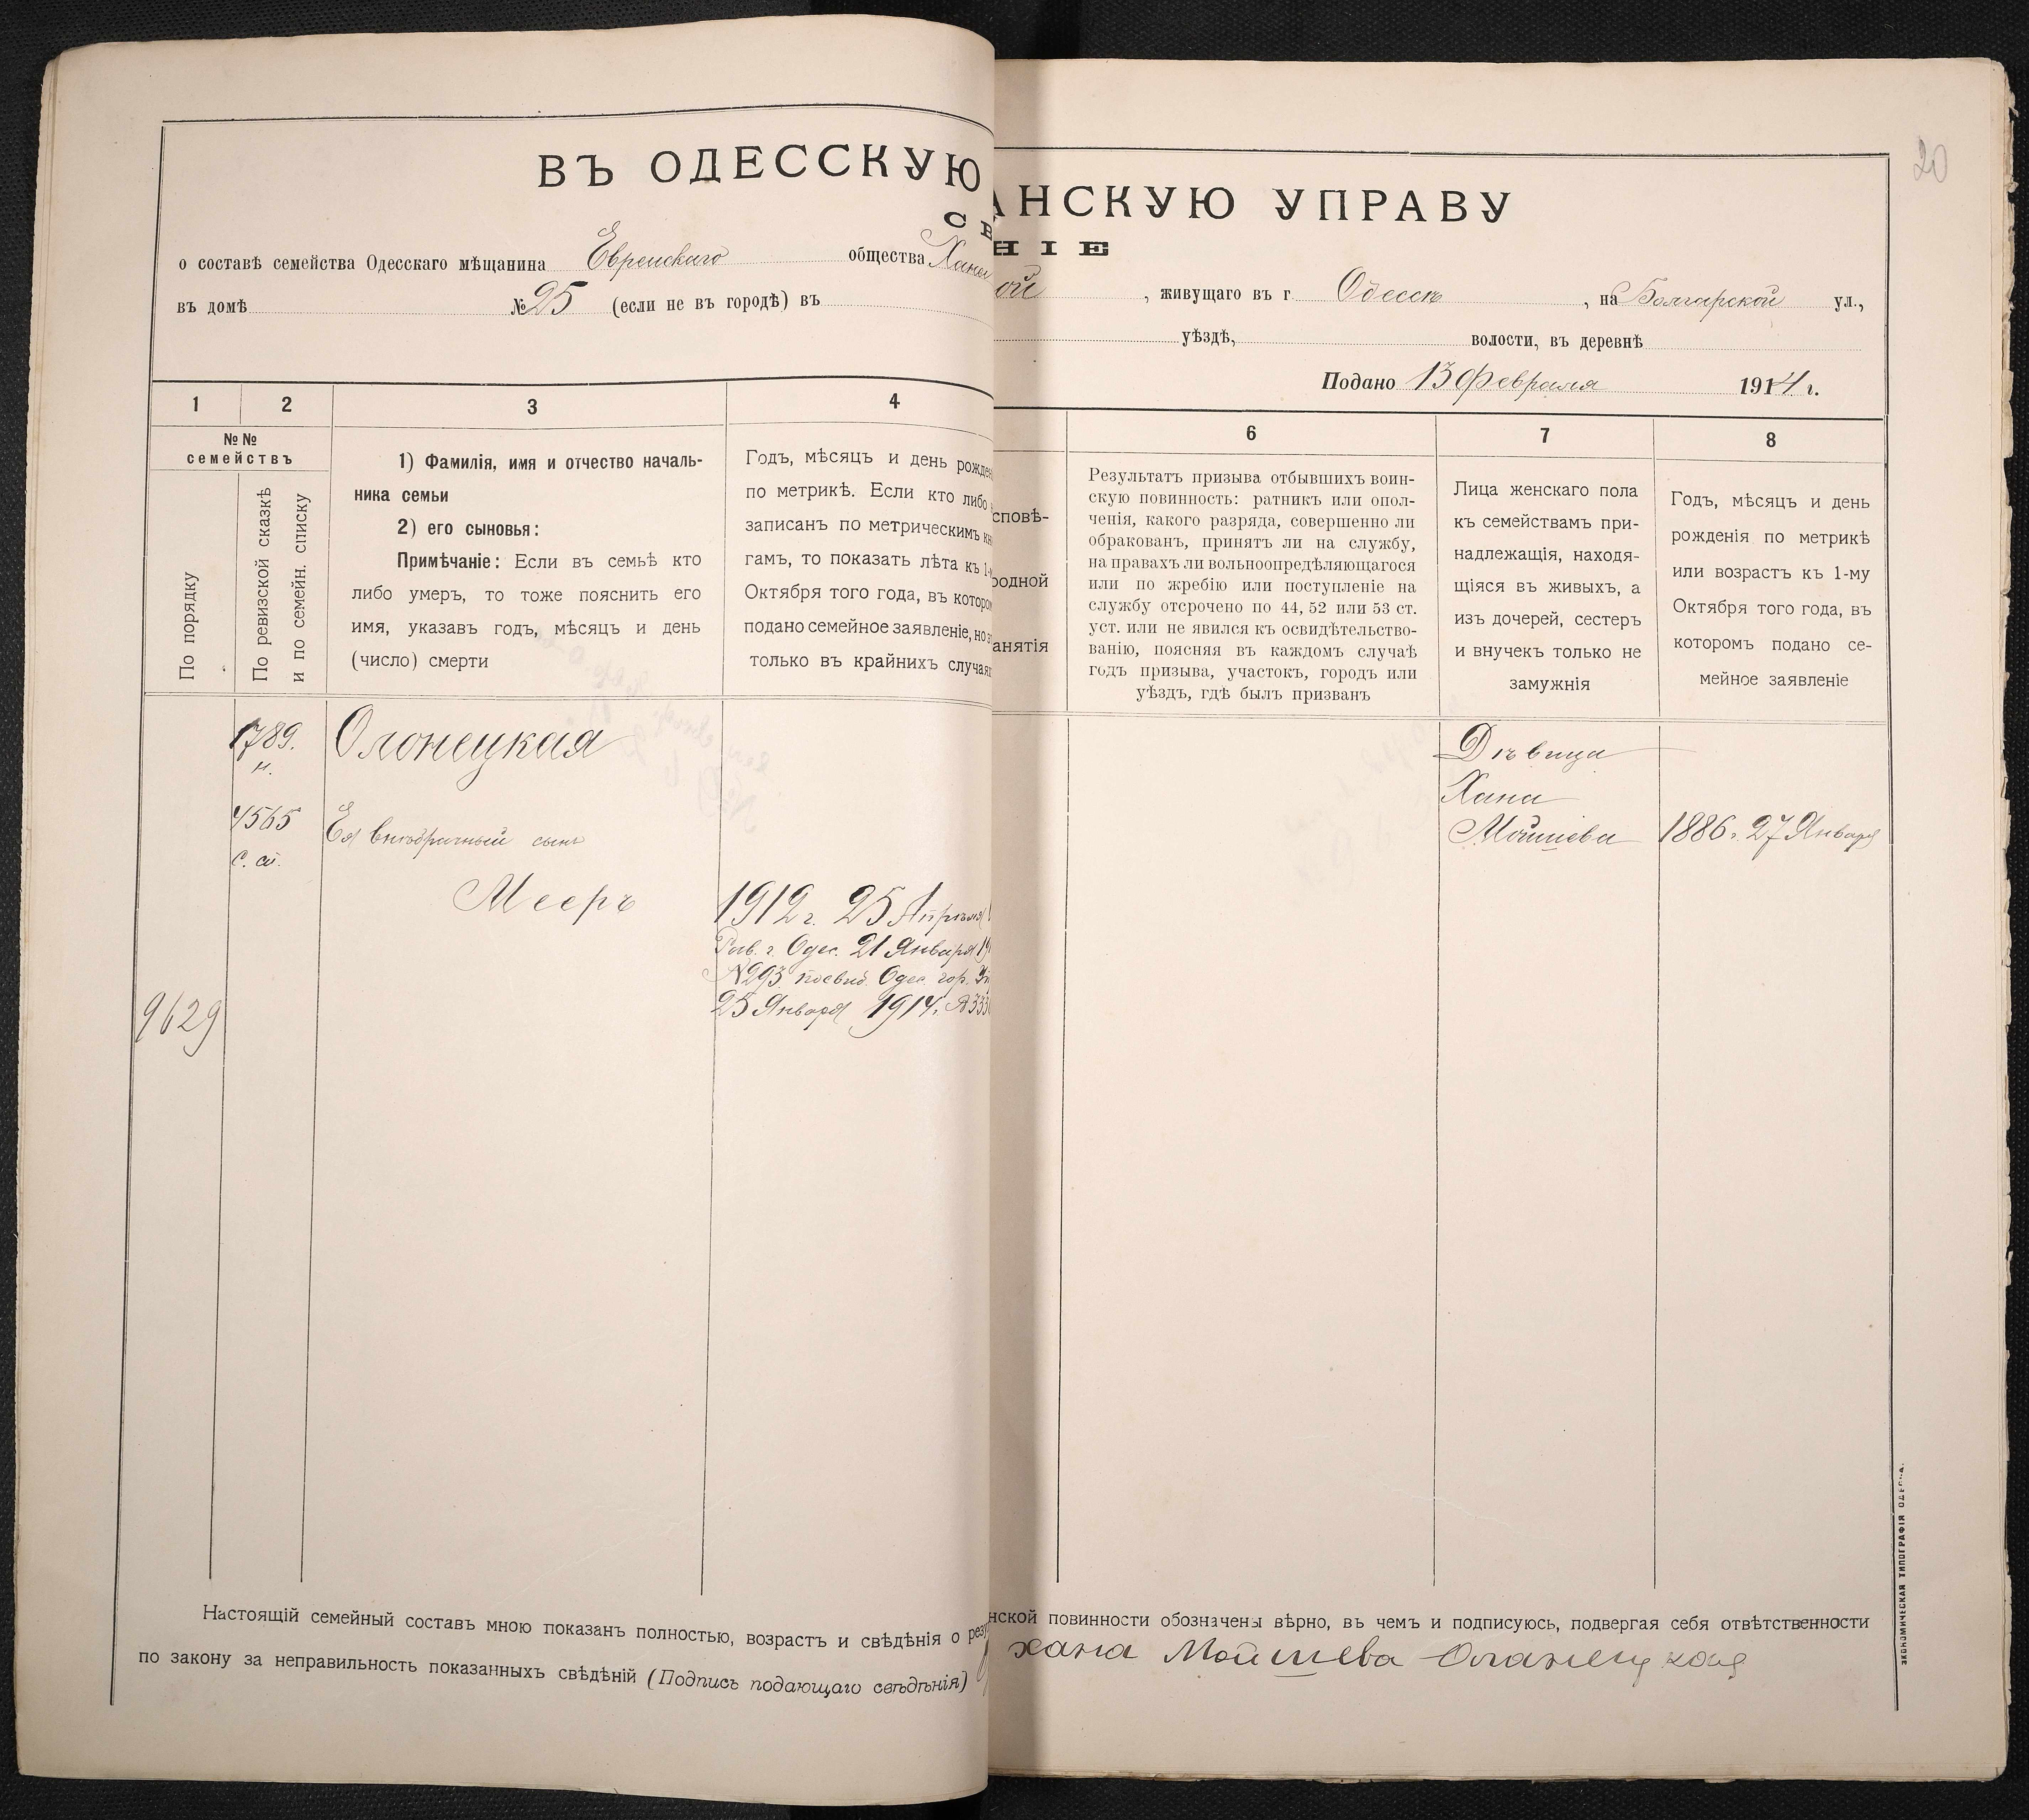 20
ВЪ ОДЕССКУЮ
АНСКУЮ УПРАВУ
СВ
НІЕ
о составѣ семейства Одесскаго мѣщанина Еврейскаго общества Ханы
ой, живущаго въ г. Одессѣ, на Болгарской ул.,
въ домѣ № 25 (если не въ городѣ) въ
уѣздѣ, волости, въ деревнѣ
Подано 13 Февраля 1914 г.
1 2 3 4
6 7 8
№№ семействъ
По порядку
По ревизской сказкѣ
и по семейн. списку
1) Фамилія, имя и отчество началь-
ника семьи
2) его сыновья:
Примѣчаніе: Если въ семьѣ кто
либо умеръ, то тоже пояснить его
имя, указавъ годъ, мѣсяцъ и день
(число) смерти
Годъ, мѣсяцъ и день рожде
по метрикѣ. Если кто либо
записанъ по метрическимъ кн
гамъ, то показать лѣта къ 1-
Октября того года, въ которо
подано семейное заявленіе, но э
только въ крайнихъ случая
сповѣ-
родной
анятія
Результатъ призыва отбывшихъ воин-
скую повинность: ратникъ или опол-
ченія, какого разряда, совершенно ли
обракованъ, принятъ ли на службу,
на правахъ ли вольноопредѣляющагося
или по жребію или поступленіе на
службу отсрочено по 44, 52 или 53 ст.
уст. или не явился къ освидѣтельство-
ванію, поясняя въ каждомъ случаѣ
годъ призыва, участокъ, городъ или
уѣздъ, гдѣ былъ призванъ
Лица женскаго пола
къ семействамъ при-
надлежащія, находя-
щіяся въ живыхъ, а
изъ дочерей, сестеръ
и внучекъ только не
замужнія
Годъ, мѣсяцъ и день
рожденія по метрикѣ
или возрастъ къ 1-му
Октября того года, въ
которомъ подано се-
мейное заявленіе
1789.
н.
Олонецкая
4565
с. сп.
Ея внѣбрачный сынъ
Мееръ
1912 г. 25 Апрѣля
Рав. г. Одес. 21 Января 19
№293 Одес. гор.
25 Января 1914 г.
9629
Дѣвица
Хана
Мойшева
1886 г. 27 Января
Настоящій семейный составъ мною показанъ полностью, возрастъ и свѣдѣнія о резу
нской повинности обозначены вѣрно, въ чемъ и подписуюсь, подвергая себя отвѣтственности
по закону за неправильность показанныхъ свѣдѣній (Подпись подающаго свѣдѣнія)
хана Мойшева Оланецкоя
ЭКОНОМИЧЕСКАЯ ТИПОГРАФІЯ ОДЕССА.